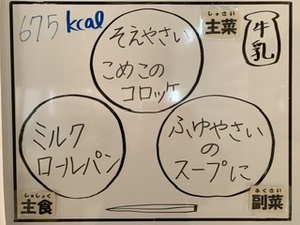 675 kcal
そえやさい
こめこの
コロッケ
しゅさい
主菜
牛乳
ミルク
ロールパン
しゅしょく
主食
ふゆやさい
の
スープに
ふくさい
副菜